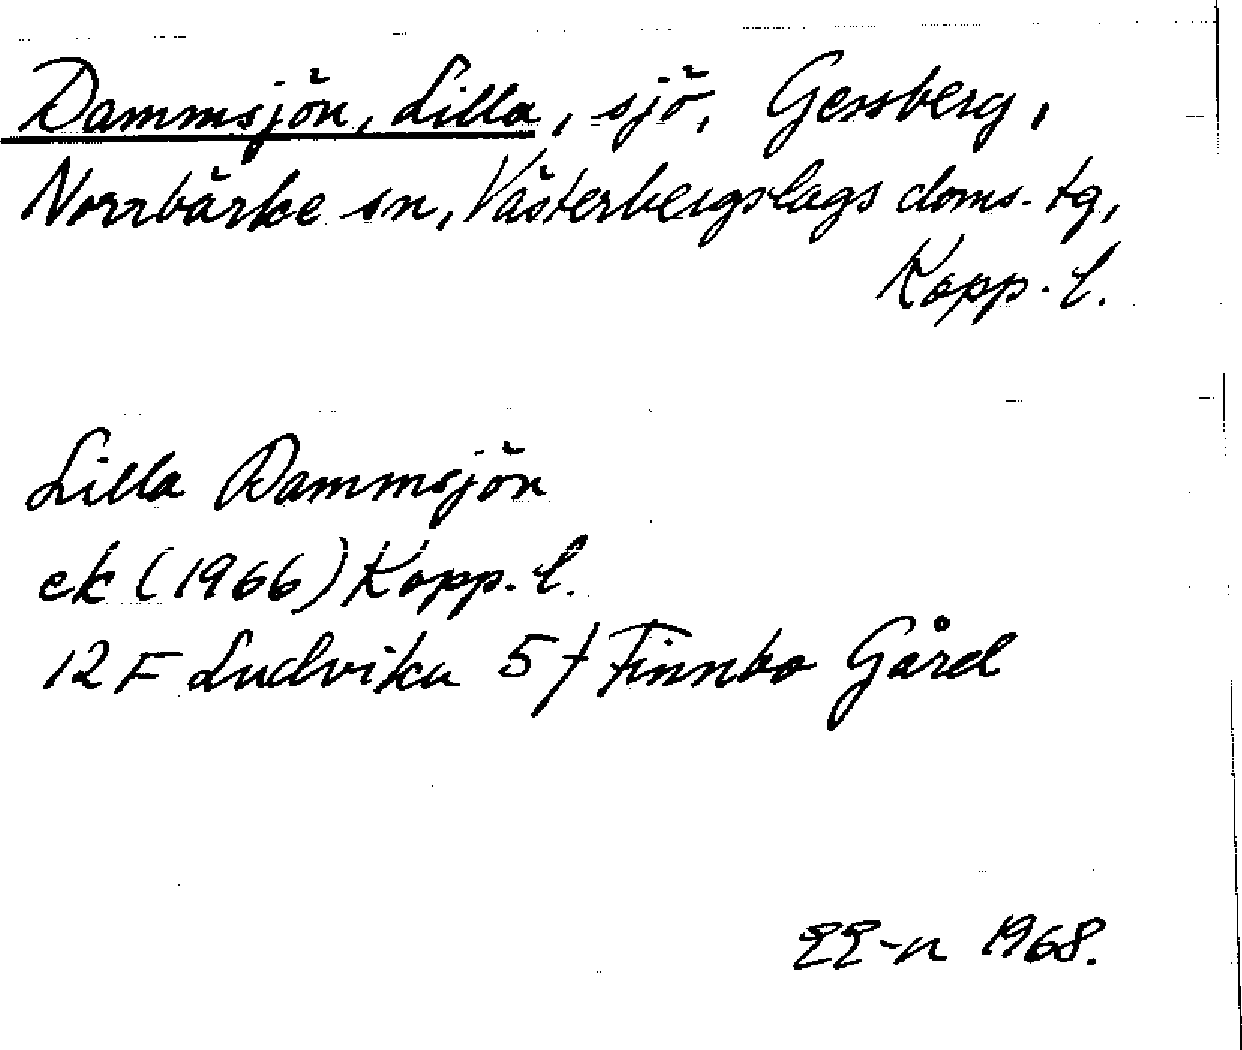 Dammsjön, Lilla, sjö, Gessberg,
Norrbärke sn, Västerbergslags doms. tg,
Kopp. l.
Lilla Dammsjön
ek (1966) Kopp. l.
12 F Ludvika 5 f Finnbo Gård
EE-n 1968.